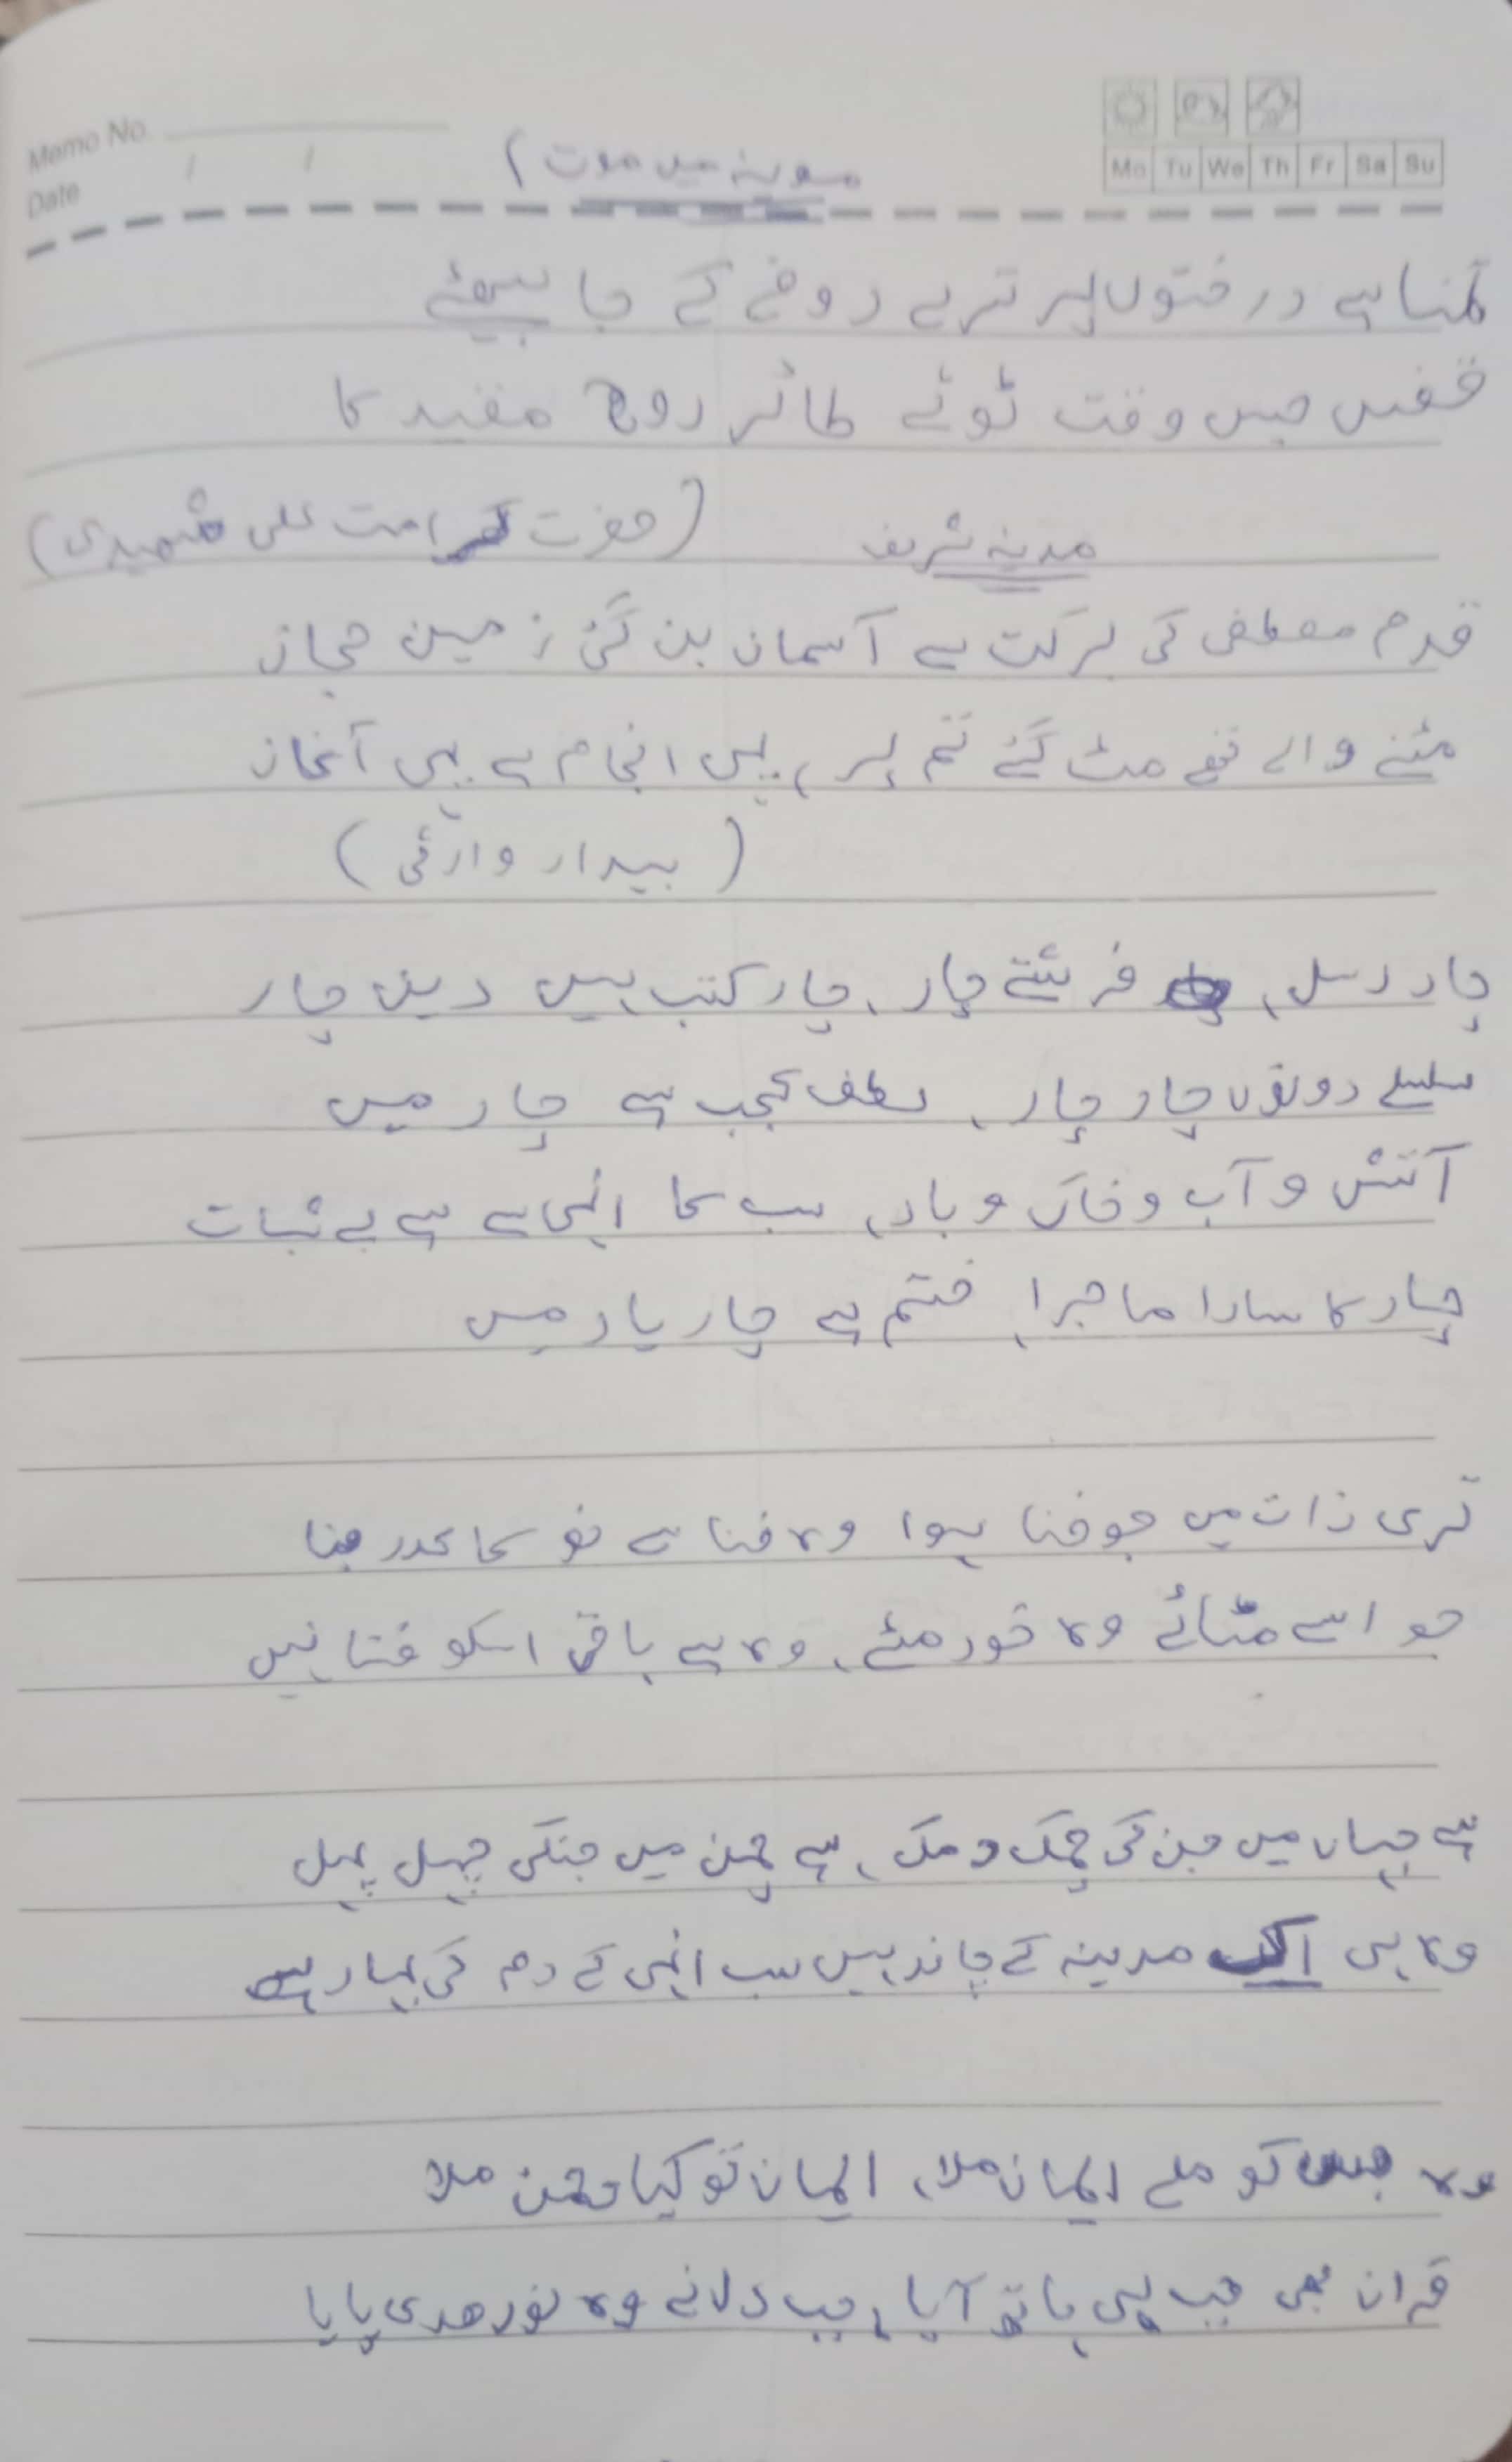 Memo No.
Date / /
Mo Tu We Th Fr Sa Su
مدینہ میں موت
تمنا ہے درختوں پر ترے روضے کے جا بیٹھے
قفس جس وقت ٹوٹے طائر روح مقید کا
(حضرت کرامت علی شہیدی)
مدینہ شریف
قدم مصطفی کی برکت سے آسمان بن گئی زمین حجاز
مٹنے والے تھے مٹ گئے تم پر، یہی انجام ہے یہی آغاز
(بیدار وارثی)
چار رسل، فرشتے چار، چار کتب ہیں دین چار
سلسلے دونوں چار چار، لطف عجب ہے چار میں
آتش و آب و خاک و باد، سب کا انہی سے ہے بے ثبات
چار کا سارا ماجرا، ختم ہے چار یار میں
تری ذات میں جو فنا ہوا وہ فنا سے نو کا عدد بنا
جو اسے مٹائے وہ خود مٹے، وہ ہے باقی اسکو فنا نہیں
ہے جہاں میں جن کی چمک دمک، ہے چمن میں جنکی چہل پہل
وہ ہی اک مدینہ کے چاند ہیں سب انہی کے دم کی بہار ہے
وہ جس کو ملے ایمان ملا، ایمان تو کیا رحمن ملا
قرآن بھی جب ہی ہاتھ آیا، جب دل نے وہ نور ھدی پایا